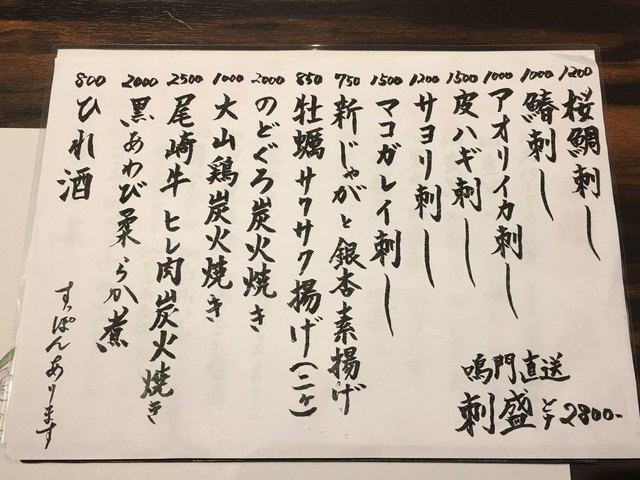 1200 桜鯛刺し
1000 鰆刺し
1000 アオリイカ刺し
1500 皮ハギ刺し
1200 サヨリ刺し
1500 マコガレイ刺し
750 新じゃがと銀杏素揚げ
850 牡蠣サクサク揚げ(二ヶ)
2000 のどぐろ炭火焼き
1000 大山鶏炭火焼き
2500 尾崎牛ヒレ肉炭火焼き
2000 黒あわび柔らか煮
800 ひれ酒
鳴門直送
刺盛 2800-
すっぽんあります